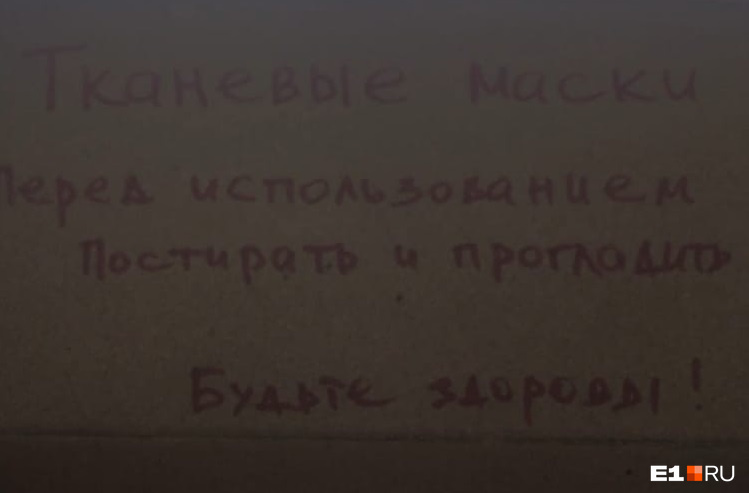 Тканевые маски
Перед использованием
Постирать и прогладить
Будьте здоровы!
E1.RU